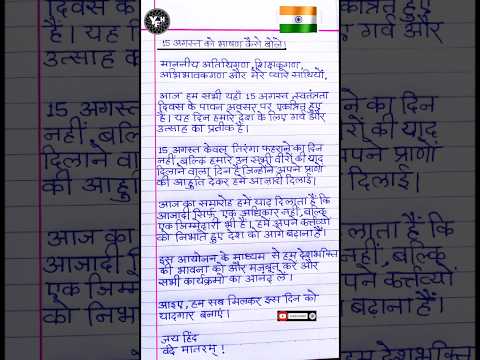 15 अगस्त को भाषण कैसे बोले।
माननीय अतिथिगण, शिक्षकगण,
अभिभावकगण और मेरे प्यारे साथियों,
आज हम सभी यहाँ 15 अगस्त, स्वतंत्रता
दिवस के पावन अवसर पर एकत्रित हुए
है। यह दिन हमारे देश के लिए गर्व और
उत्साह का प्रतीक है।
15 अगस्त केवल तिरंगा फहराने का दिन
नहीं, बल्कि हमारे उन सभी वीरों की याद
दिलाने वाला दिन है जिन्होंने अपने प्राणों
की आहुति देकर हमें आजादी दिलाई।
आज का समारोह हमें याद दिलाता है कि
आजादी सिर्फ एक अधिकार नहीं, बल्कि
एक जिम्मेदारी भी है। हमें अपने कर्त्तव्यों
को निभाते हुए देश को आगे बढ़ाना है।
इस आयोजन के माध्यम से हम देशभक्ति
की भावना को और मजबूत करें और
सभी कार्यक्रमों का आनंद लें।
आइए, हम सब मिलकर इस दिन को
यादगार बनाएं।
जय हिंद
वंदे मातरम् !